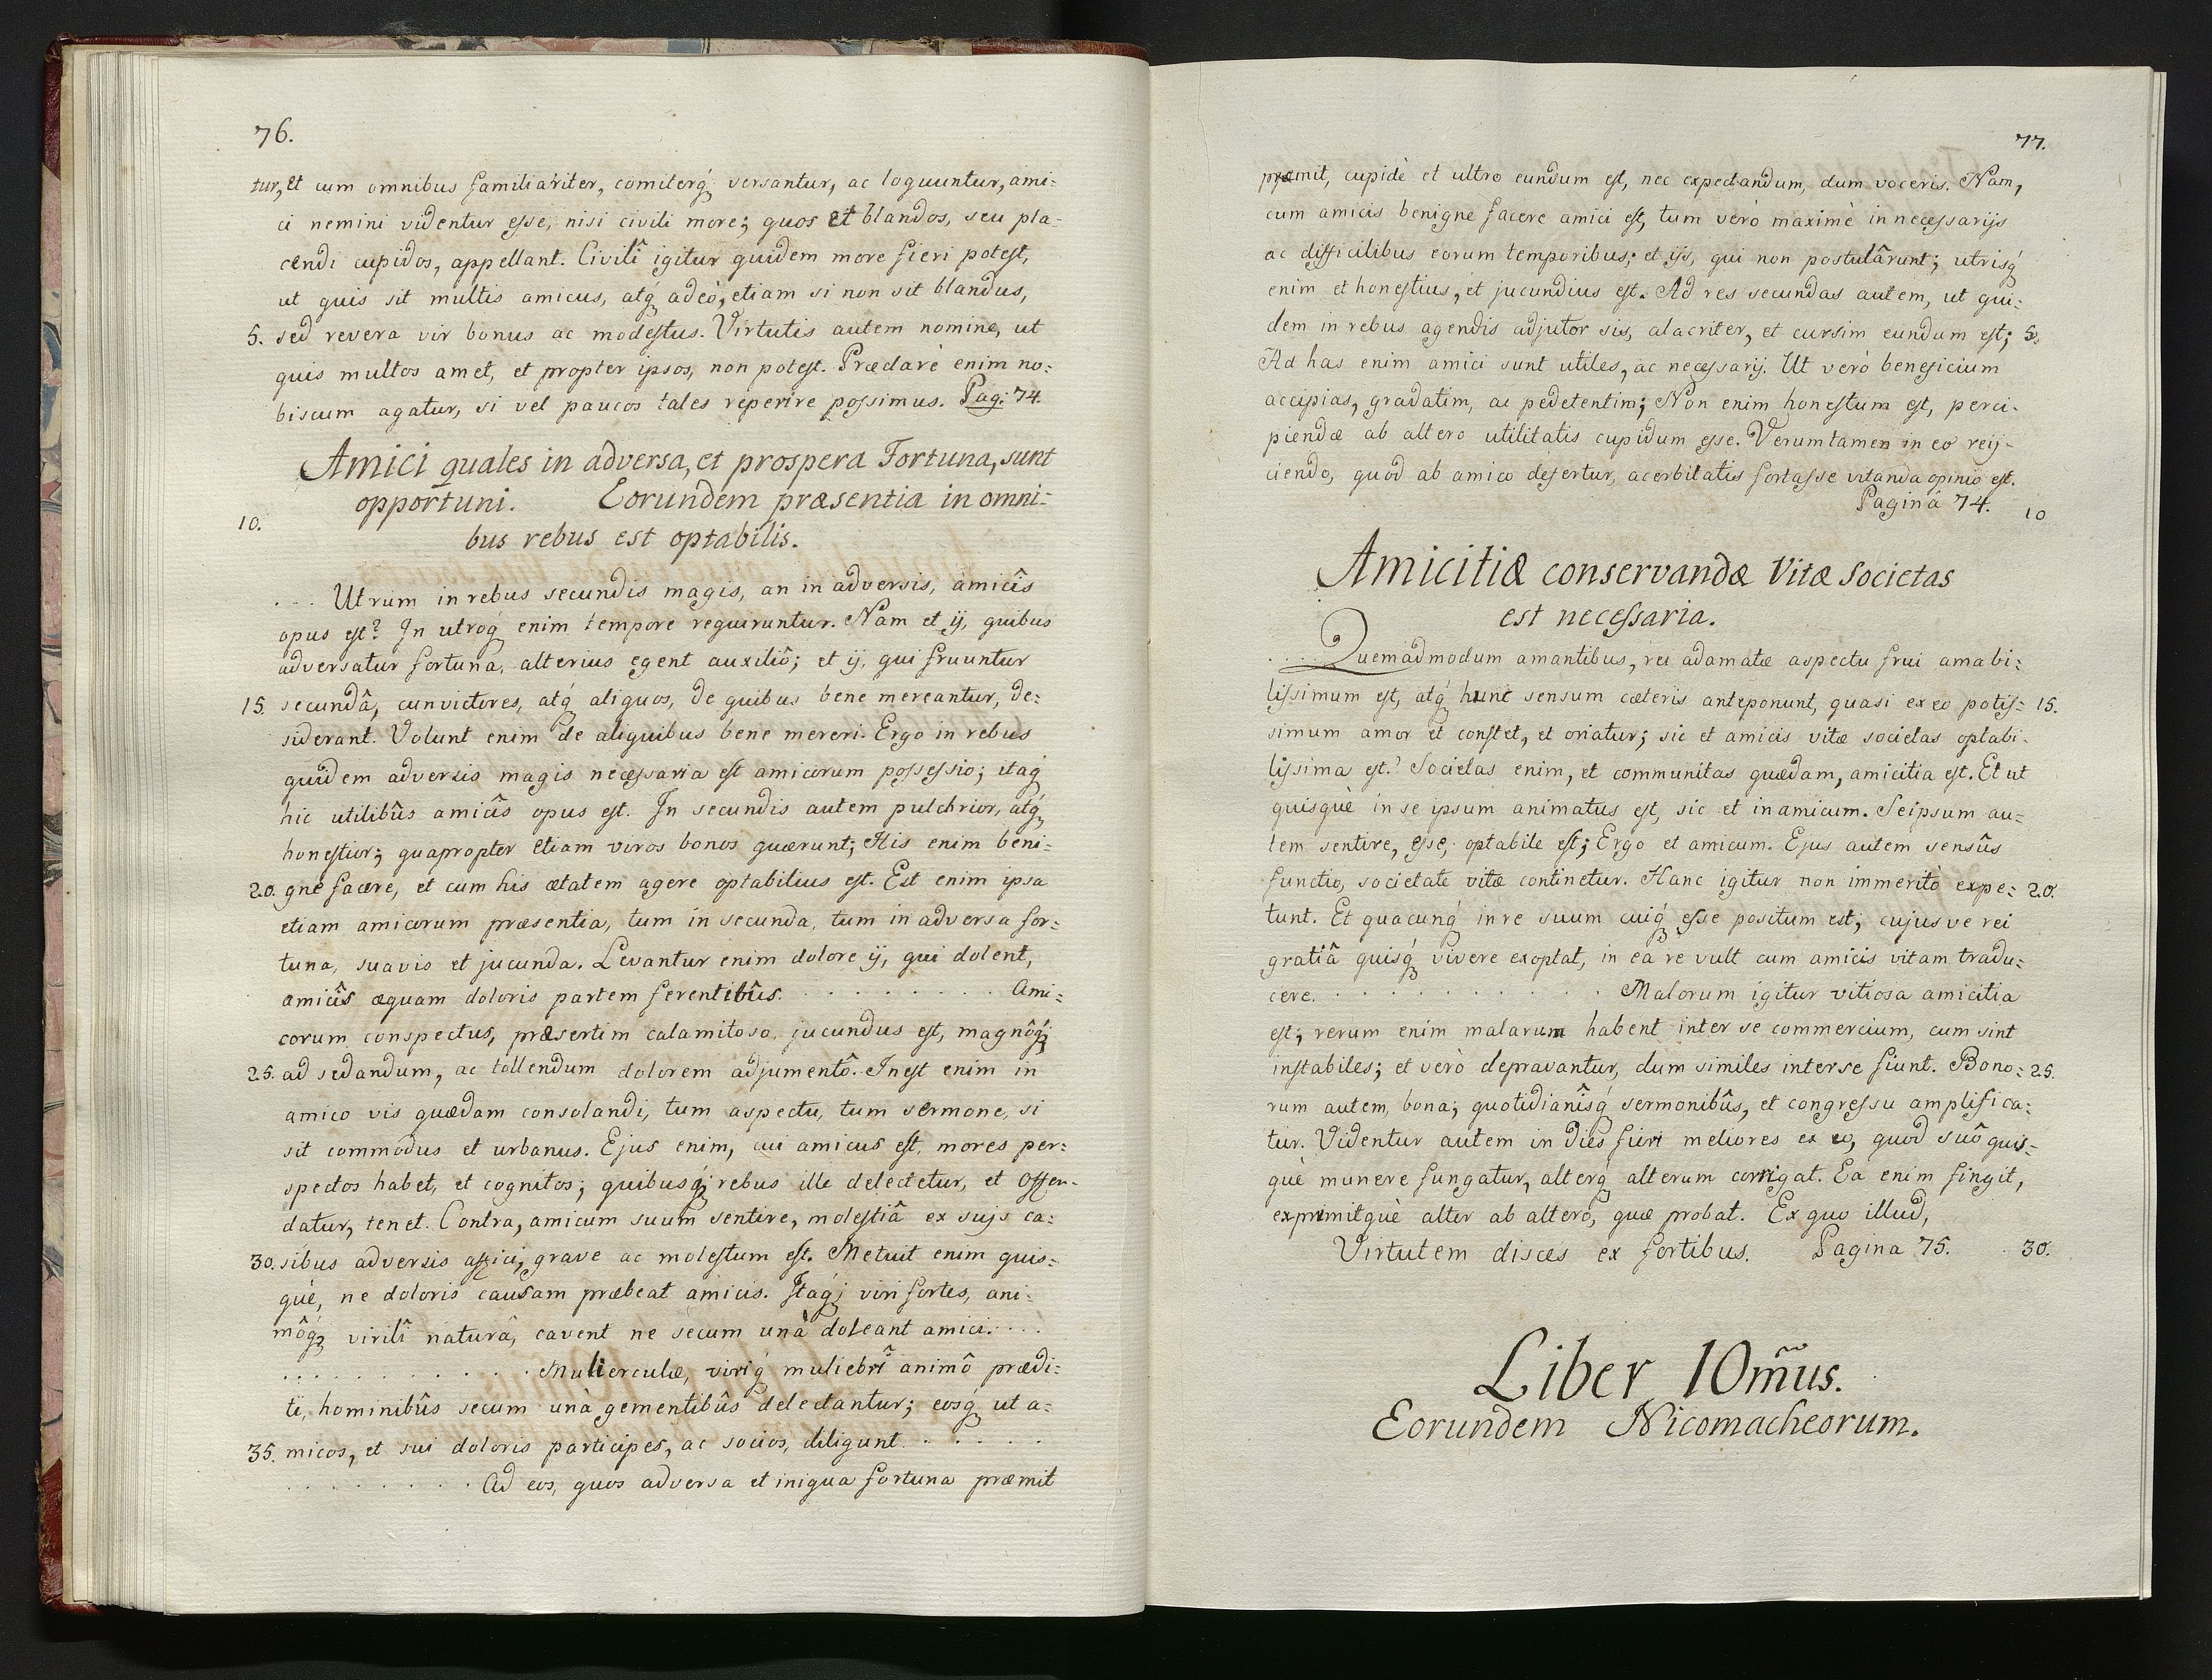 76.
tur, et cum omnibus familiariter, comiterq́ versantur, ac loquuntur, ami:
ci nemini videntur esse, nisi civili more; quos et blandos, seu pla:
cendi cupidos, appellant. Civilî igitur quidem more fieri potest,
ut quis sit multis amicus, atq́ adeò, etiam si non sit blandus,
5. sed revera vir bonus ac modestus. Virtutis autem nomine, ut
quis multos amet, et propter ipsos, non potest. Præclarè enim no:
biscum agatur, si vel paucos tales reperire possimus. Pag: 74.
Amici quales in adversa, et prospera Fortuna, sunt
opportuni. Eorundem præsentia in omni:
10.
bus rebus est optabilis.
... Utrum in rebus secundis magis, an in adversis, amicîs
opus est? In utroq́ enim tempore requiruntur. Nam et ij, quibus
adversatur fortuna, alterius egent auxiliô; et ij, qui fruuntur
15. secundâ, cunvictores, atq́ aliquos, de quibus bene mereantur, de:
siderant. Volunt enim de aliquibus bene mereri. Ergo in rebus
quidem adversis magis necessaria est amicorum possessio; itaq́
hic utilibûs amicîs opus est. In secundis autem pulchrior, atq́
honestior; quapropter etiam viros bonos quærunt; His enim beni:
20. gnè facere, et cum his ætatem agere optabilius est. Est enim ipsa
etiam amicorum præsentia, tum in secunda, tum in adversa for:
tuna, suavis et jucunda. Levantur enim dolore ij, qui dolent,
amicîs æquam doloris partem ferentibûs. . . . . . . . . . Ami:
corum conspectus, præsertim calamitoso, jucundus est, magnôq́
25. ad sedandum, ac tollendum dolorem adjumentô. Inest enim in
amico vis quædam consolandi, tum aspectu, tum sermone, si
sit commodus et urbanus. Ejus enim, cui amicus est, mores per:
spectos habet, et cognitos; quibusq́ rebus ille delectetur, et offen-
datur, tenet. Contra, amicum suum sentire, molestiâ ex sujs ca:
30. sibus adversis affici, grave ac molestum est. Metuit enim quis:
què, ne doloris causam præbeat amicis. Itaq́ viri fortes, ani:
môq́ virilî naturâ, cavent ne secum unà doleant amici. . . .
. . . . . . . . . . Mulierculæ, viriq́ muliebrî animô prædi:
ti, hominibûs secum unà gementibûs delectantur; eosq́ ut a:
35. micos, et sui doloris participes, ac socios, diligunt. . . . . . .
. . . . . . . . . Ad eos, quos adversa et iniqua fortuna præmit
77.
præmit, cupidè et ultro eundum est, nec expectandum, dum voceris. Nam,
cum amicis benigne facere amici est, tum verò maximè in necessarijs
ac difficilibus eorum temporibus; et ijs, qui non postulârunt; utrisq́
enim et honestius, et jucundius est. Ad res secundas autem, ut qui:
dem in rebus agendis adjutor sis, alacriter, et cursim eundum est; 5.
Ad has enim amici sunt utiles, ac necessarij. Ut verò beneficium
accipias, gradatim, ac pedetentim; Non enim honestum est, perci-
piendæ ab altero utilitatis cupidum esse. Verumtamen in eo reij-
ciendo, quod ab amico defertur, acerbitatis fortasse vitanda opinio est.
Paginâ 74. 10
Amicitiæ conservandæ Vitæ Societas
est necessaria.
... Quemadmodum amantibus, rei adamatæ aspectu frui amabi:
lissimum est, atq́ hunc sensum cæteris anteponunt, quasi ex eo potis: 15.
simum amor et constet, et oriatur; sic et amicis vitæ societas optabi-
lissima est.? Societas enim, et communitas quædam, amicitia est. Et ut
quisquè in se ipsum animatus est, sic et in amicum. Seipsum au:
tem sentire, esse, optabile est; Ergo et amicum. Ejus autem sensûs
functio, societate vitæ continetur. Hanc igitur non immeritò expe: 20.
tunt. Et quacunq́ in re suum cuiq́ esse positum est; cujusve rei
gratiâ quisq́ vivere exoptat, in ea re vult cum amicis vitam tradu:
cere. . . . . . . . . . . . Malorum igitur vitiosa amicitia
est; rerum enim malarum habent inter se commercium, cum sint
instabiles; et verò depravantur, dum similes inter se fiunt. Bono: 25.
rum autem, bona; quotidianîsq́ sermonibûs, et congressu amplifica:
tur. Videntur autem in dies fieri meliores ex eo, quod suô quis:
què munere fungatur, alterq́ alterum corrigat. Ea enim fingit,
exprimitquè alter ab altero, quæ probat. Ex quo illud,
Virtutem disces ex fortibus. Pagina 75. 30.
Liber 10m̃us.
Eorundem Nicomacheorum.